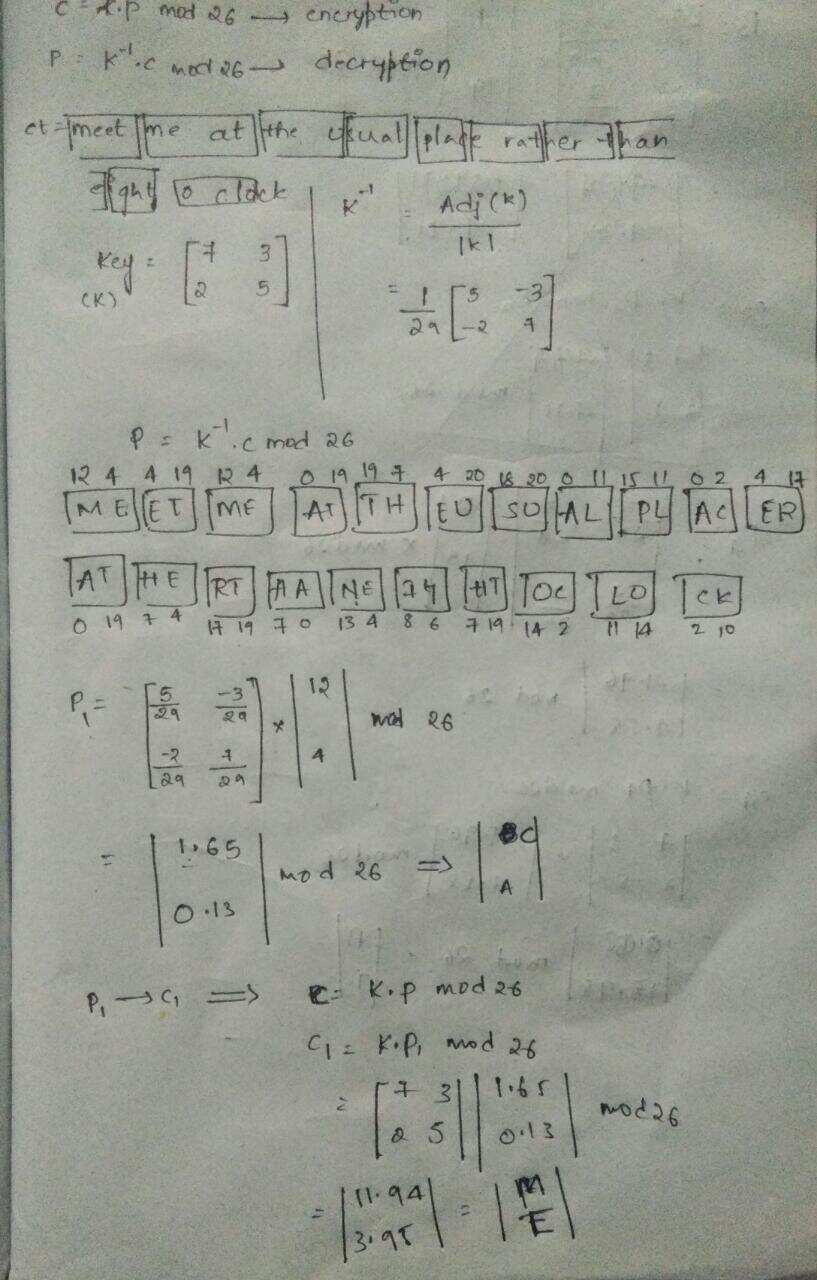 C = K.P mod 26 → encryption
P = K⁻¹.C mod 26 → decryption
ct = meet me at the usual place rather than
eight o clock
Key = [7 3
(K) 2 5]
K⁻¹ = Adj(K)
|K|
= 1/29 [5 -3
-2 7]
P = K⁻¹.C mod 26
12 4 4 19 12 4 0 19 19 7 4 20 18 20 0 11 15 11 0 2 4 17
ME ET ME AT TH EU SU AL PL AC ER
AT HE RT HA NE IG HT OC LO CK
0 19 7 4 17 19 7 0 13 4 8 6 7 19 14 2 11 14 2 10
P₁ = [5/29 -3/29
-2/29 7/29] × |12
4| mod 26
= |1.65
0.13| mod 26 ⇒ |C
A|
P₁ → C₁ ⇒ C = K.P mod 26
C₁ = K.P₁ mod 26
= [7 3
2 5] |1.65
0.13| mod 26
= |11.94
3.95| = |M
E|